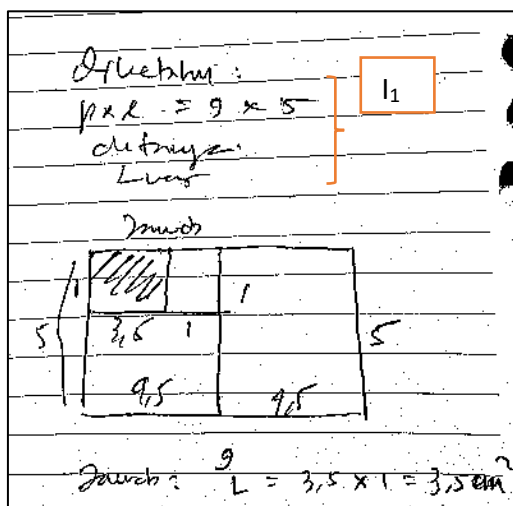 Diketahui :
I₁
p x l = 9 x 5
ditanya:
Luas
Jawab
1
1
5
3,5 1
5
4,5 4,5
9
Jawab : L = 3,5 x 1 = 3,5 cm²